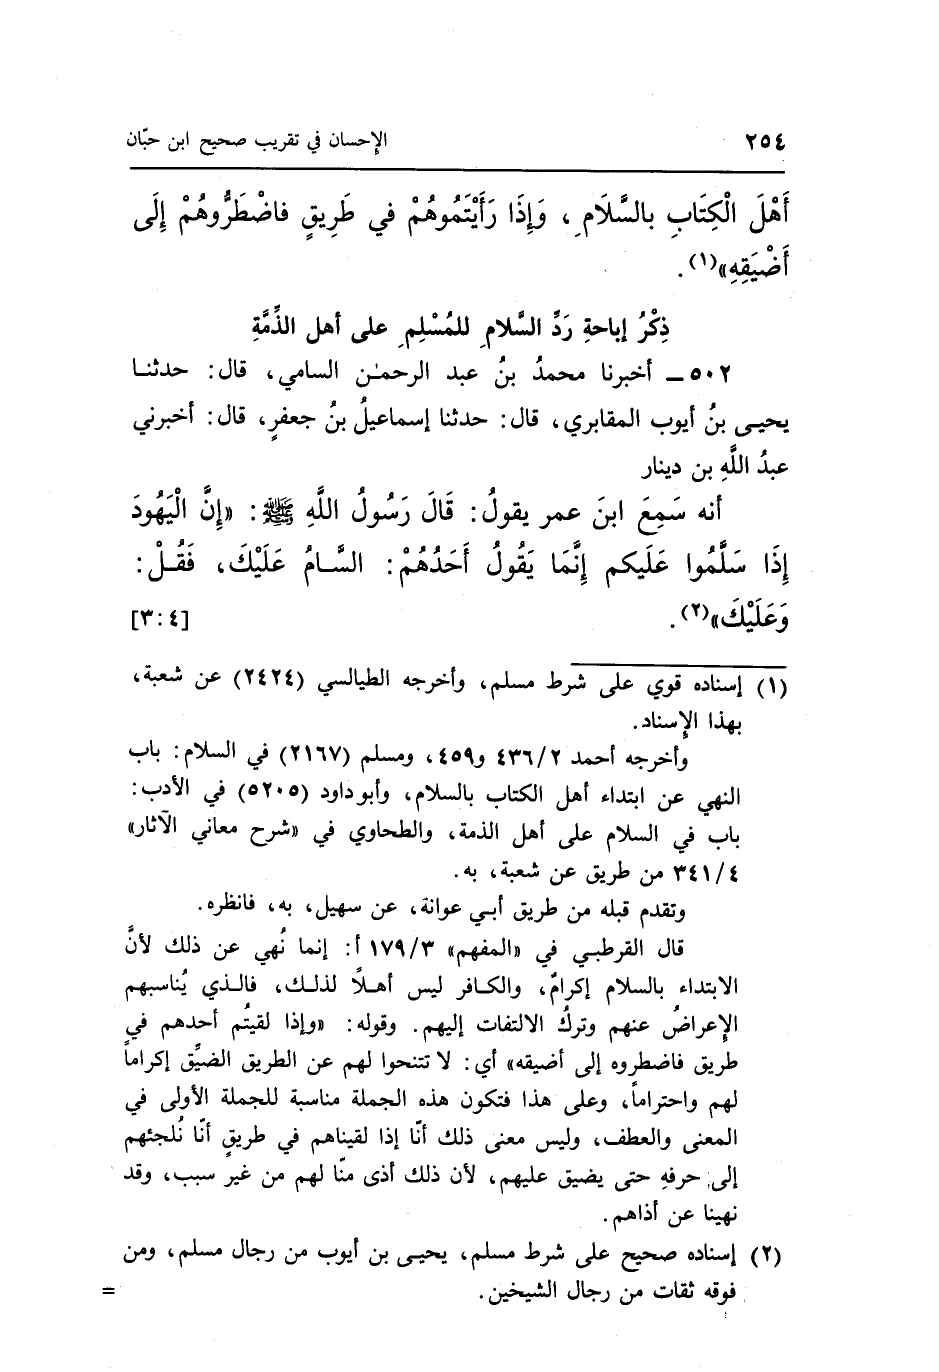 ٢٥٤ الإحسان في تقريب صحيح ابن حبّان
أَهْلَ الْكِتَابِ بالسَّلَامِ ، وَإِذَا رَأَيْتَمُوهُمْ في طَرِيقٍ فاضْطَرُّوهُمْ إِلَى
أَضْيَقِهِ»(١) .
ذِكْرُ إباحةِ رَدِّ السَّلامِ للمُسْلِمِ على أهل الذِّمَّةِ
٥٠٢ ـ أخبرنا محمدُ بنُ عبد الرحمٰن السامي، قال: حدثنا
يحيى بنُ أيوب المقابري، قال: حدثنا إسماعيلُ بنُ جعفرٍ، قال: أخبرني
عبدُ اللَّهِ بن دينار
أنه سَمِعَ ابنَ عمر يقولُ: قَالَ رَسُولُ اللَّهِ ﷺ: «إِنَّ الْيَهُودَ
إِذَا سَلَّمُوا عَلَيكم إِنَّمَا يَقُولُ أَحَدُهُمْ: السَّامُ عَلَيْكَ، فَقُلْ:
وَعَلَيْكَ»(٢). [٣:٤]
(١) إسناده قوي على شرط مسلم، وأخرجه الطيالسي (٢٤٢٤) عن شعبة،
بهذا الإسناد.
وأخرجه أحمد ٤٣٦/٢ و٤٥٩، ومسلم (٢١٦٧) في السلام: باب
النهي عن ابتداء أهل الكتاب بالسلام، وأبو داود (٥٢٠٥) في الأدب:
باب في السلام على أهل الذمة، والطحاوي في «شرح معاني الآثار»
٣٤١/٤ من طريق عن شعبة، به.
وتقدم قبله من طريق أبي عوانة، عن سهيل، به، فانظره.
قال القرطبي في «المفهم» ١٧٩/٣ أ: إنما نُهي عن ذلك لأنَّ
الابتداء بالسلام إكرامٌ، والكافر ليس أهلاً لذلك، فالذي يُناسبهم
الإعراضُ عنهم وتركُ الالتفات إليهم. وقوله: «وإذا لقيتُم أحدهم في
طريق فاضطروه إلى أضيقه» أي: لا تتنحوا لهم عن الطريق الضيِّق إكراماً
لهم واحتراماً، وعلى هذا فتكون هذه الجملة مناسبة للجملة الأولى في
المعنى والعطف، وليس معنى ذلك أنّا إذا لقيناهم في طريقٍ أنّا نُلجئهم
إلى حرفهِ حتى يضيق عليهم، لأن ذلك أذى منّا لهم من غير سبب، وقد
نهينا عن أذاهم.
(٢) إسناده صحيح على شرط مسلم، يحيى بن أيوب من رجال مسلم، ومن
فوقه ثقات من رجال الشيخين. =